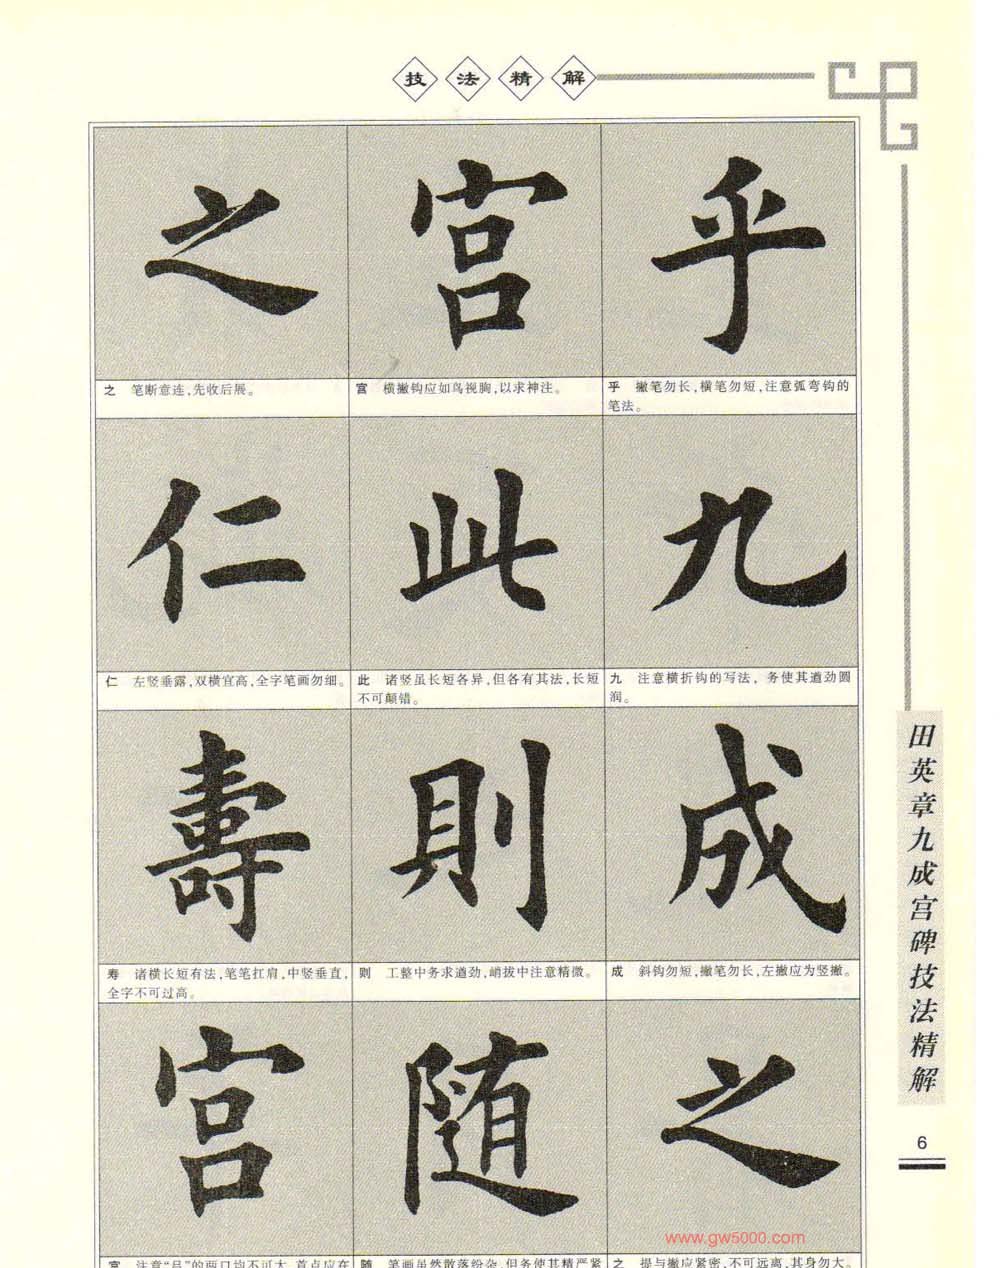 技法精解
之 宫 乎
之 笔断意连,先收后展。
宫 横撇钩应如鸟视胸,以求神注。
乎 撇笔勿长,横笔勿短,注意弧弯钩的
笔法。
仁 此 九
仁 左竖垂露,双横宜高,全字笔画勿细。
此 诸竖虽长短各异,但各有其法,长短
不可颠错。
九 注意横折钩的写法,务使其遒劲圆
润。
壽 則 成
寿 诸横长短有法,笔笔扛肩,中竖垂直,
全字不可过高。
则 工整中务求遒劲,峭拔中注意精微。
成 斜钩勿短,撇笔勿长,左撇应为竖撇。
宫 随 之
宫 注意“吕”的两口均不可大,首点应在
随 笔画虽然散落纷杂,但务使其精严紧
之 提与撇应紧密,不可远离,其身勿大。
田英章九成宫碑技法精解
6
www.gw5000.com